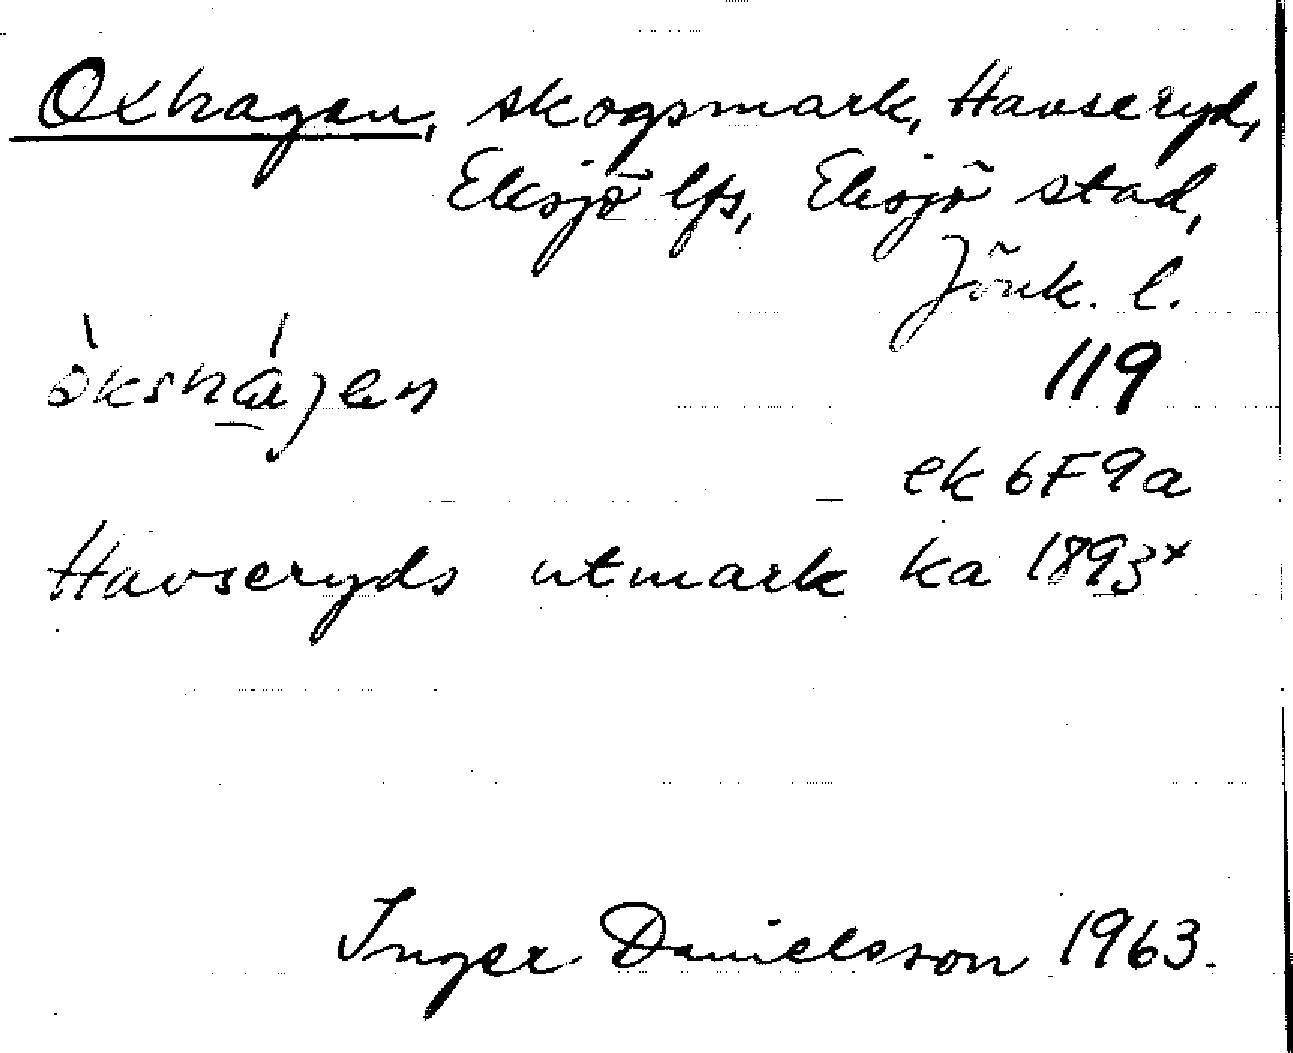 Oxhagen, skogsmark, Havseryd,
Eksjö lfs, Eksjö stad,
Jönk. l.
òkshájen
119
ek 6F9a
Havseryds utmark ka 1893x
Inger Danielsson 1963.